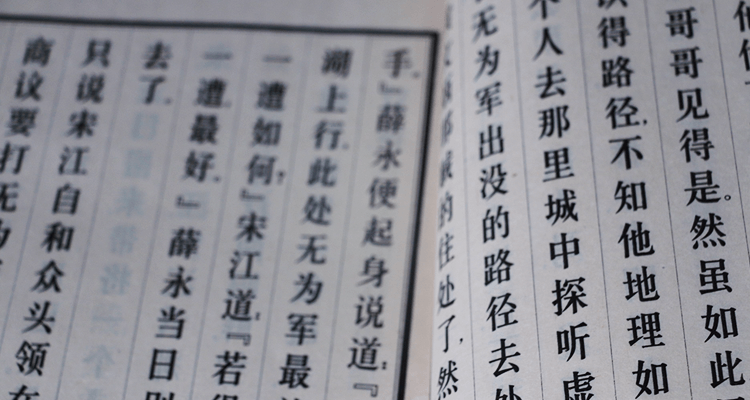 哥哥见得是。然虽如此
得路径,不知他地理如
个人去那里城中探听虚
无为军出没的路径去处
的住处了,然
手。』薛永便起身说道:『
湖上行。此处无为军最
一遭如何?』宋江道:『若得
一遭最好。』薛永当日别
去了。
只说宋江自和众头领在
商议要打无为